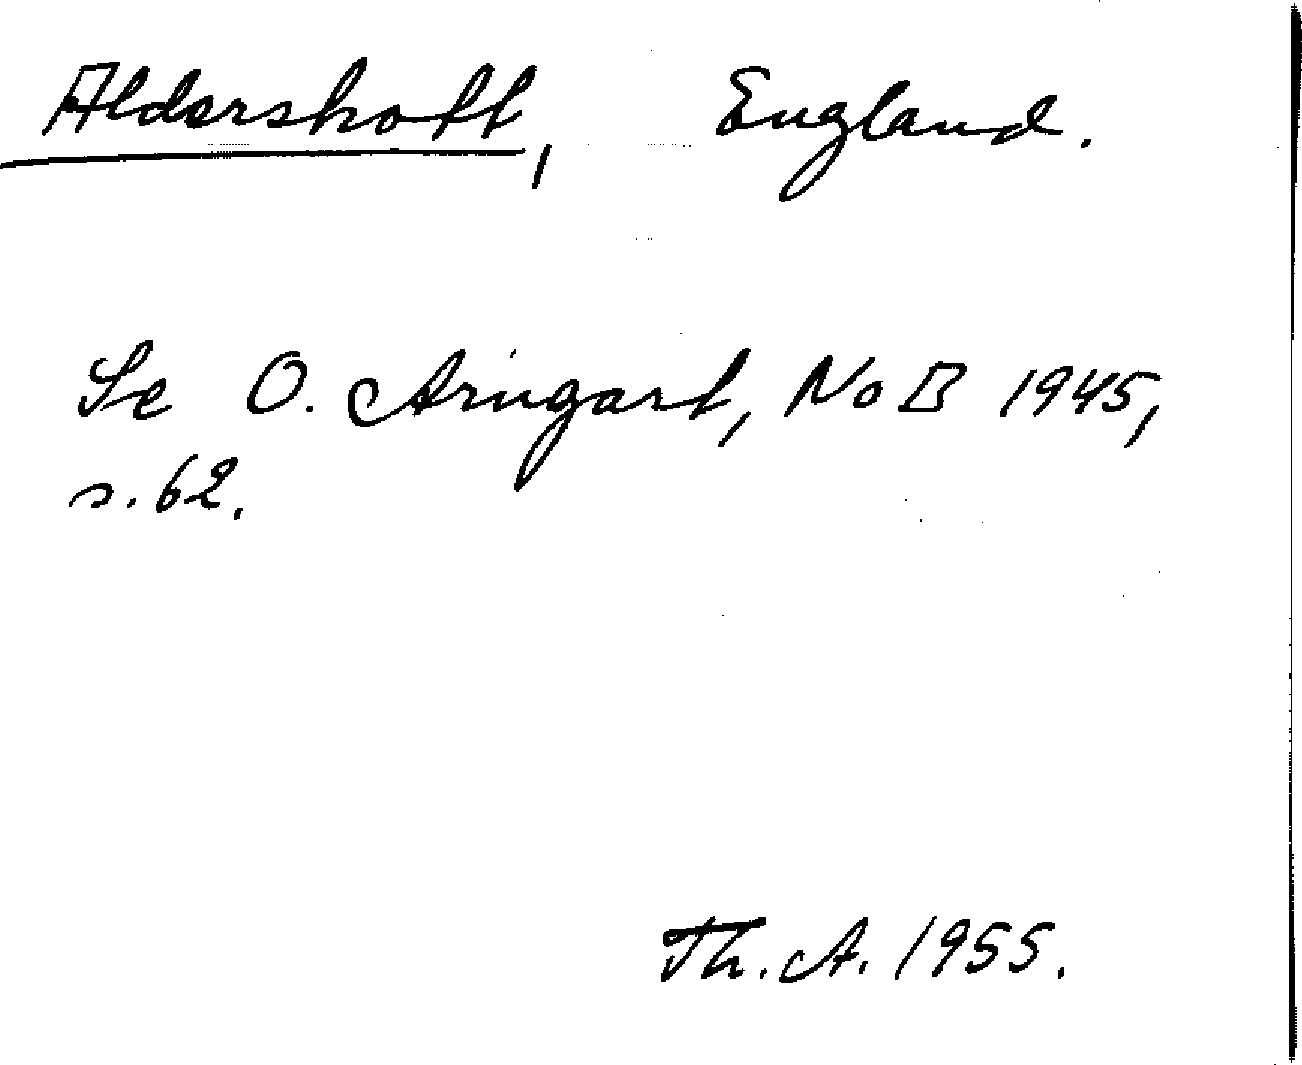 Aldershott, England.
Se O. Arngart, NoB 1945,
s. 62.
Th. A. 1955.